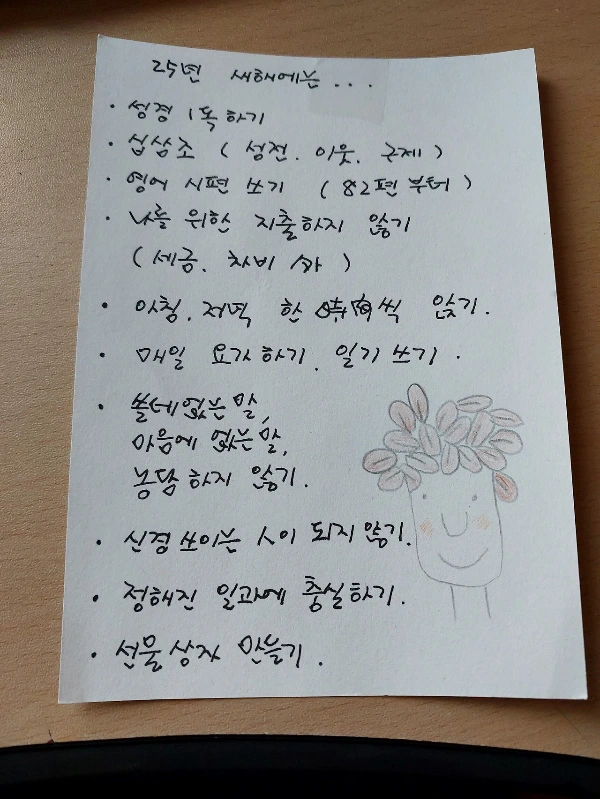 25년 새해에는...
· 성경 1독 하기
· 십삼조 ( 성전. 이웃. 구제 )
· 영어 시편 쓰기 ( 82편 부터 )
· 나를 위한 지출하지 않기
( 세금. 차비 外 )
· 아침. 저녁 한 時間씩 앉기.
· 매일 요가하기. 일기 쓰기.
· 쓸데없는 말,
마음에 없는 말,
농담 하지 않기.
· 신경 쓰이는 人이 되지 않기.
· 정해진 일과에 충실하기.
· 선물 상자 만들기.